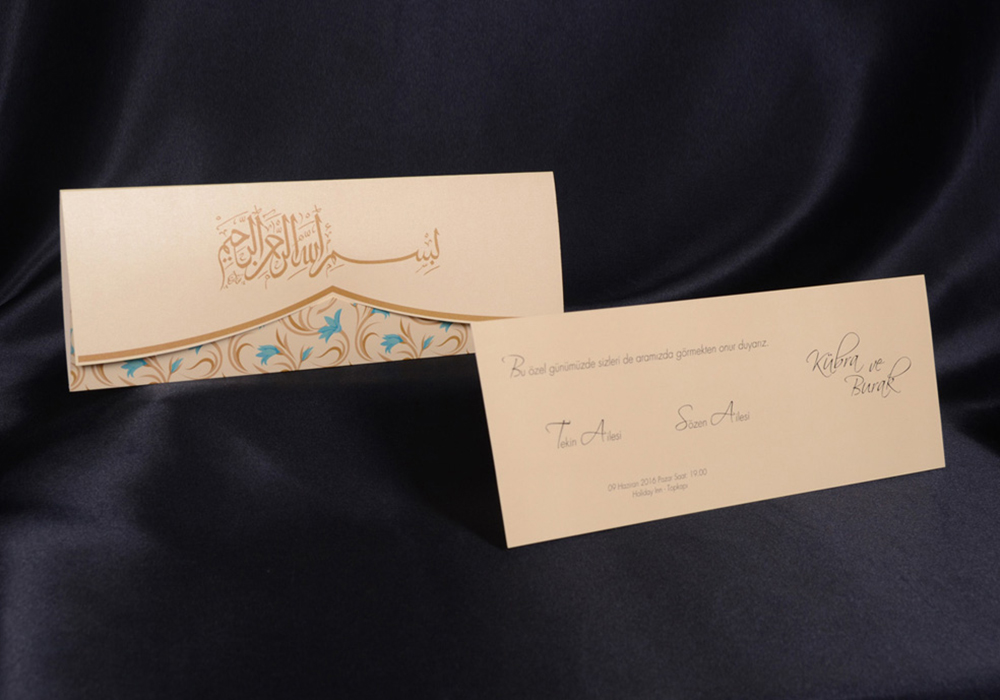 بِسْمِ اللَّهِ الرَّحْمَنِ الرَّحِيمِ
Bu özel günümüzde sizleri de aramızda görmekten onur duyarız.
Kübra ve
Burak
Tekin Ailesi
Sözen Ailesi
09 Haziran 2016 Pazar Saat: 19:00
Holiday Inn - Topkapı